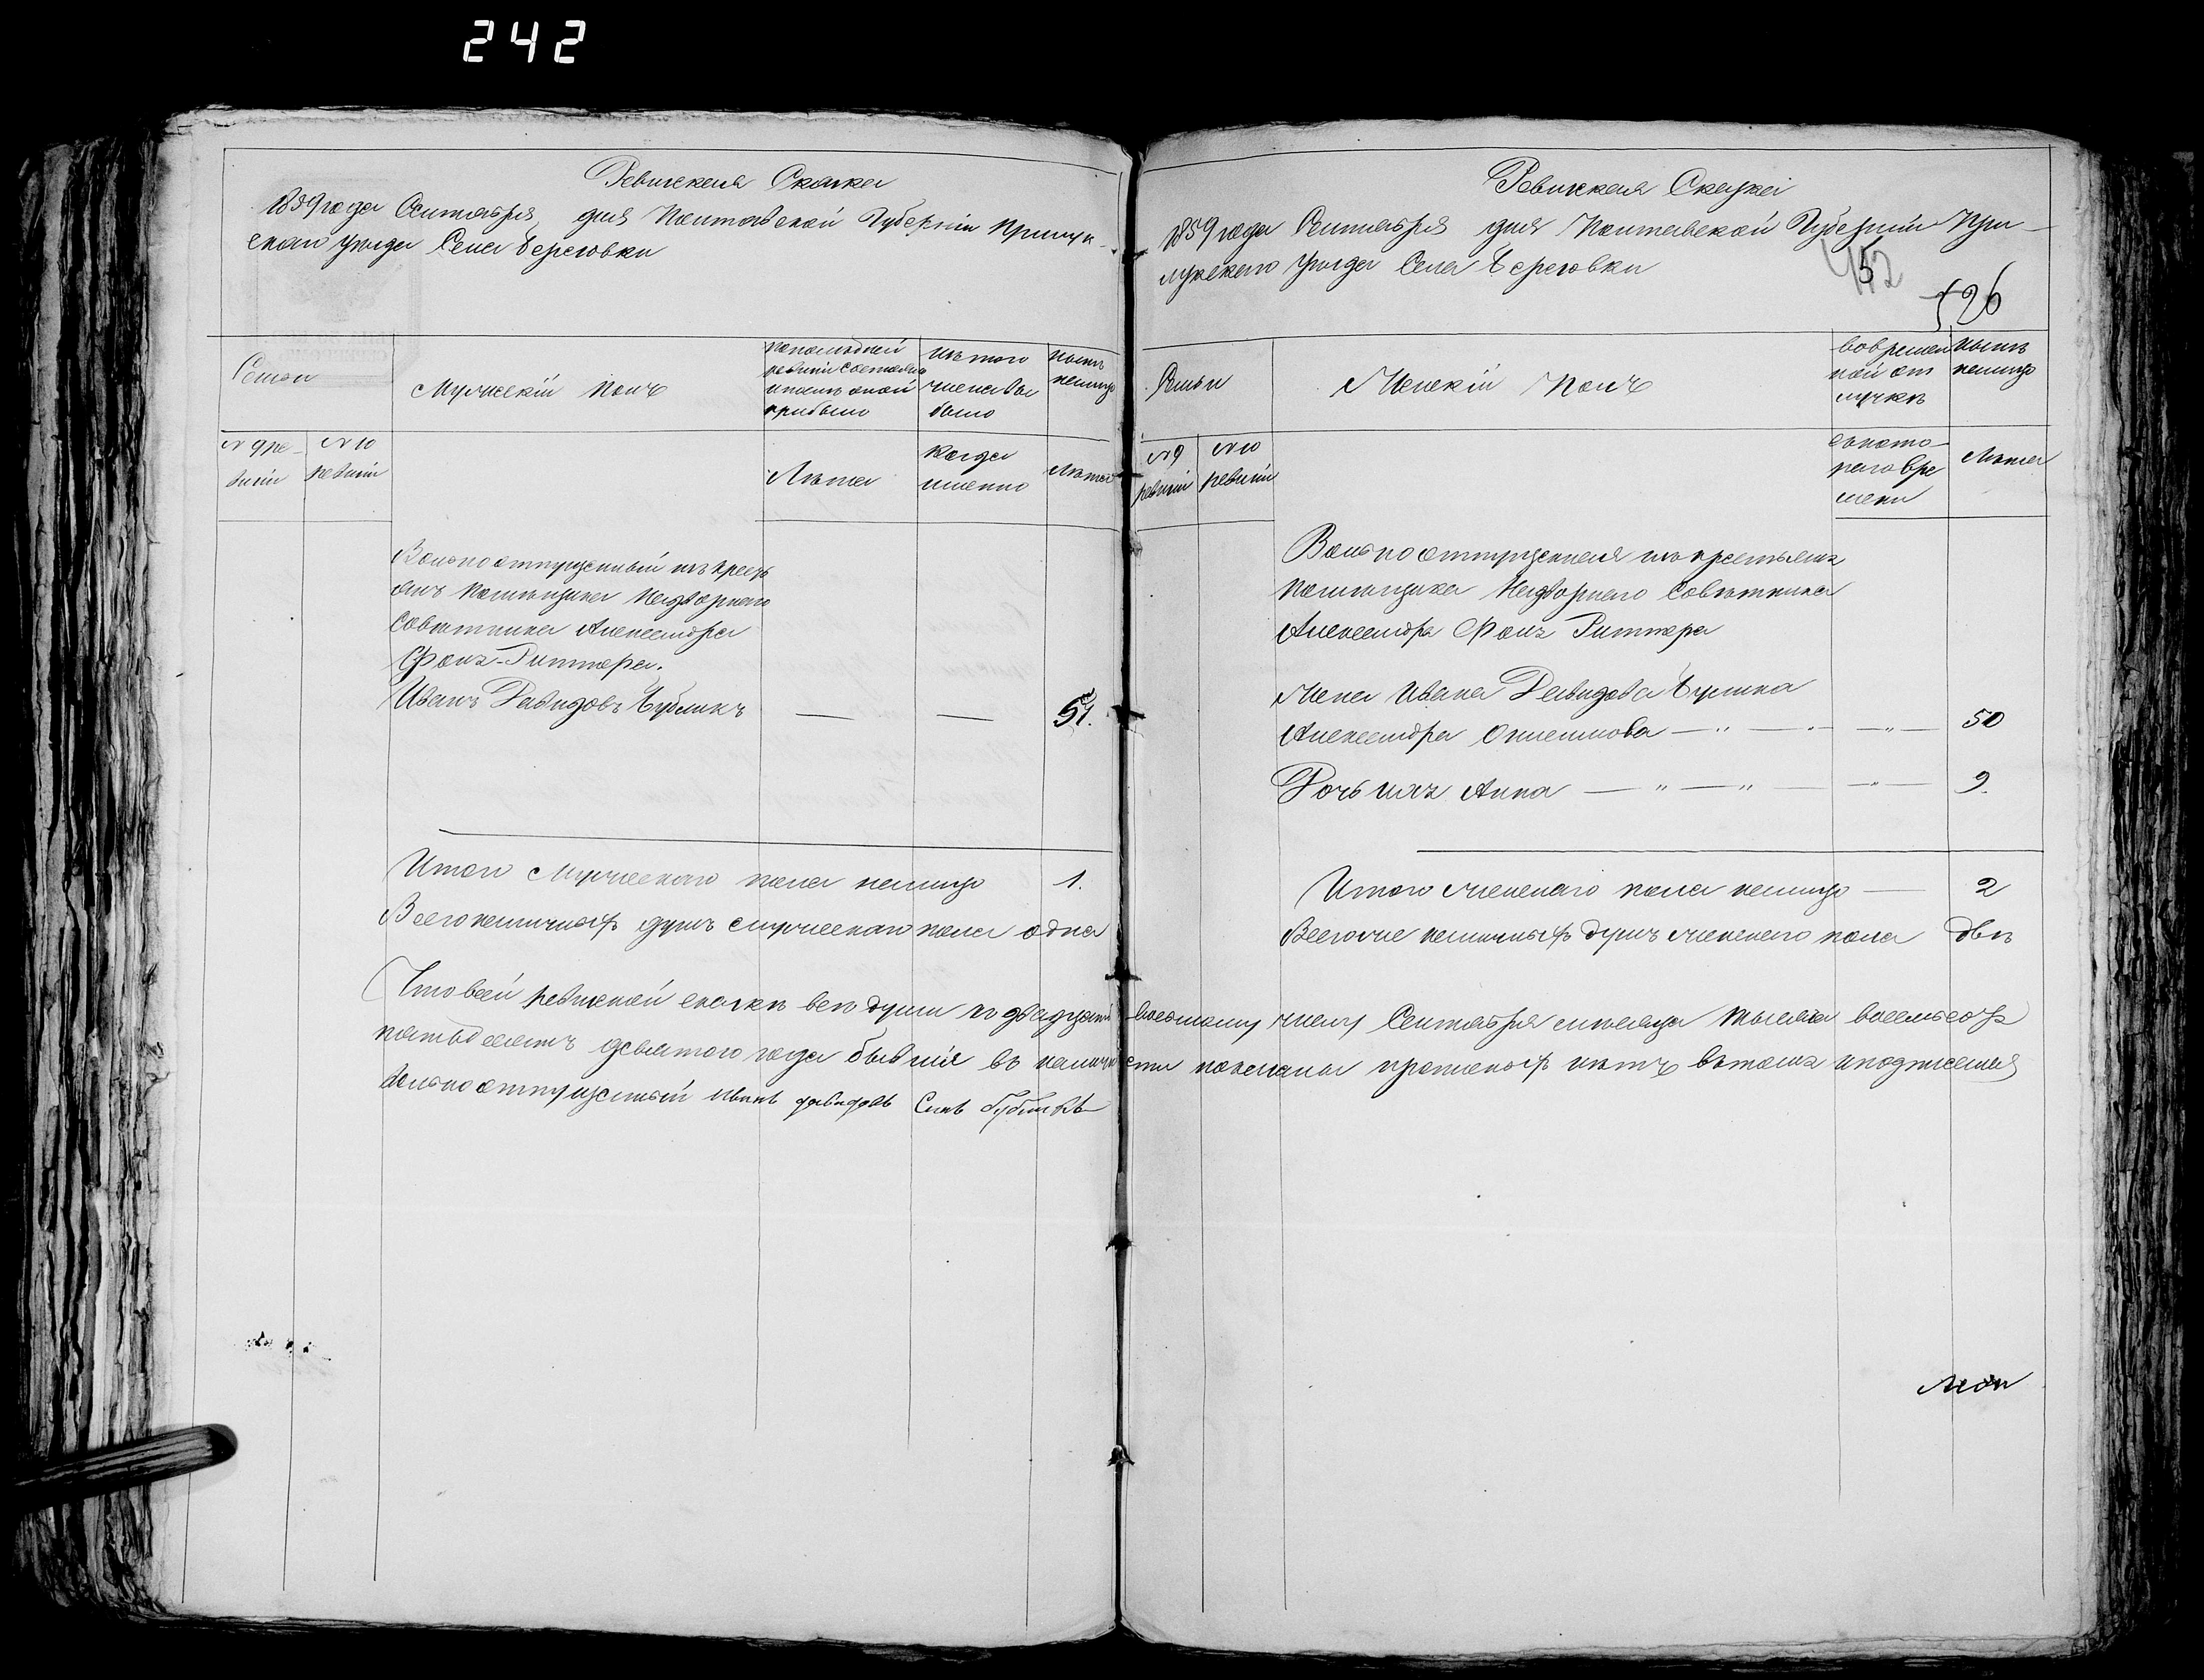 242
Ревизская Сказка
1859 года Сентября, дня Полтавской Губернии Прилук-
скаго уезда Села Береговки
Семьи
Мужескій полъ
По последней
ревизіи состояло
и после оной
прибыло
Изъ того
числа вы
было
Ныне
налицо
№ 9 ре-
визіи
№ 10
ревизіи
Лета
Когда
именно
Лета
Вольноотпущенный изъ кресть
янъ помещика Надворнаго
Советника Александра
Фонъ-Риттера.
Иванъ Давидовъ Бубликъ — — 51.
Итого Мужескаго пола налицо 1.
Всего наличныхъ душъ мужескаго пола одна
Ревизская Сказка
1859 года Сентября дня Полтавской Губерніи При-
лукскаго уезда Села Береговки
452
526
Семьи
Женскій Полъ
Во времен
ной от
лучке
Ныне
налицо
№ 9
ревизіи
№ 10
ревизіи
Съ кото-
раго вре
мени
Лета
Вольноотпущенная изъ крестьянъ
помещика Надворнаго Советника
Александра Фонъ Риттера
Жена Ивана Давидова Бублика
Александра — " — " — " — 50
Дочь ихъ Анна — " — " — " — 9.
Итого женскаго пола налицо — 2
Всего же наличныхъ душъ женскаго пола две
Что въ сей ревизской сказке все души по двадцать восьмому числу Сентября месяца тысяча восемьсотъ
пятьдесятъ девятого года бывшія въ наличности показаны прописныхъ нетъ в томъ и подписался
вольноотпущеный иванъ давидовъ Синъ бубликъ